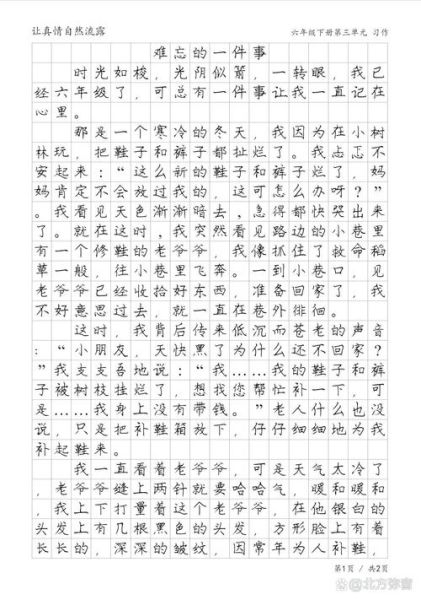 让真情自然流露 六年级下册第三单元 习作
难忘的一件事
时光如梭，光阴似箭，一转眼，我已
经六年级了，可总有一件事让我一直记在
心里。
那是一个寒冷的冬天，我因为在小树
林玩，把鞋子和裤子都扯烂了。我忐忑不
安起来：“这么新的鞋子和裤子烂了，妈
妈肯定不会放过我的，这可怎么办呀？”
。我看见天色渐渐暗去，急得都快哭出来
了。就在这时，我突然看见路边的小巷里
有一个修鞋的老爷爷，我像抓住了救命稻
草一般，往小巷里飞奔。一到小巷口，见
老爷爷已经收拾好东西，准备回家了，我
不好意思过去，就一直在巷外徘徊。
这时，我背后传来低沉而苍老的声音
：“小朋友，天快黑了为什么还不回家？
”我支支吾地说：“我……我的鞋子和裤
子被树枝挂烂了，想找您帮忙补一下，可
是……我身上没有带钱。”老人什么也没
说，只是把补鞋箱放下，仔仔细细地为我
补起鞋来。
我一直看着老爷爷，可是天气太冷了
，老爷爷缝上两针就要哈哈气，暖和暖和
，我上下打量着这个老爷爷，在他银白的
头发上有几根黑色的头发，方形脸上有着
长长的，深深的皱纹，因常年为人补鞋，
第1页 / 共2页
@北方弥雪